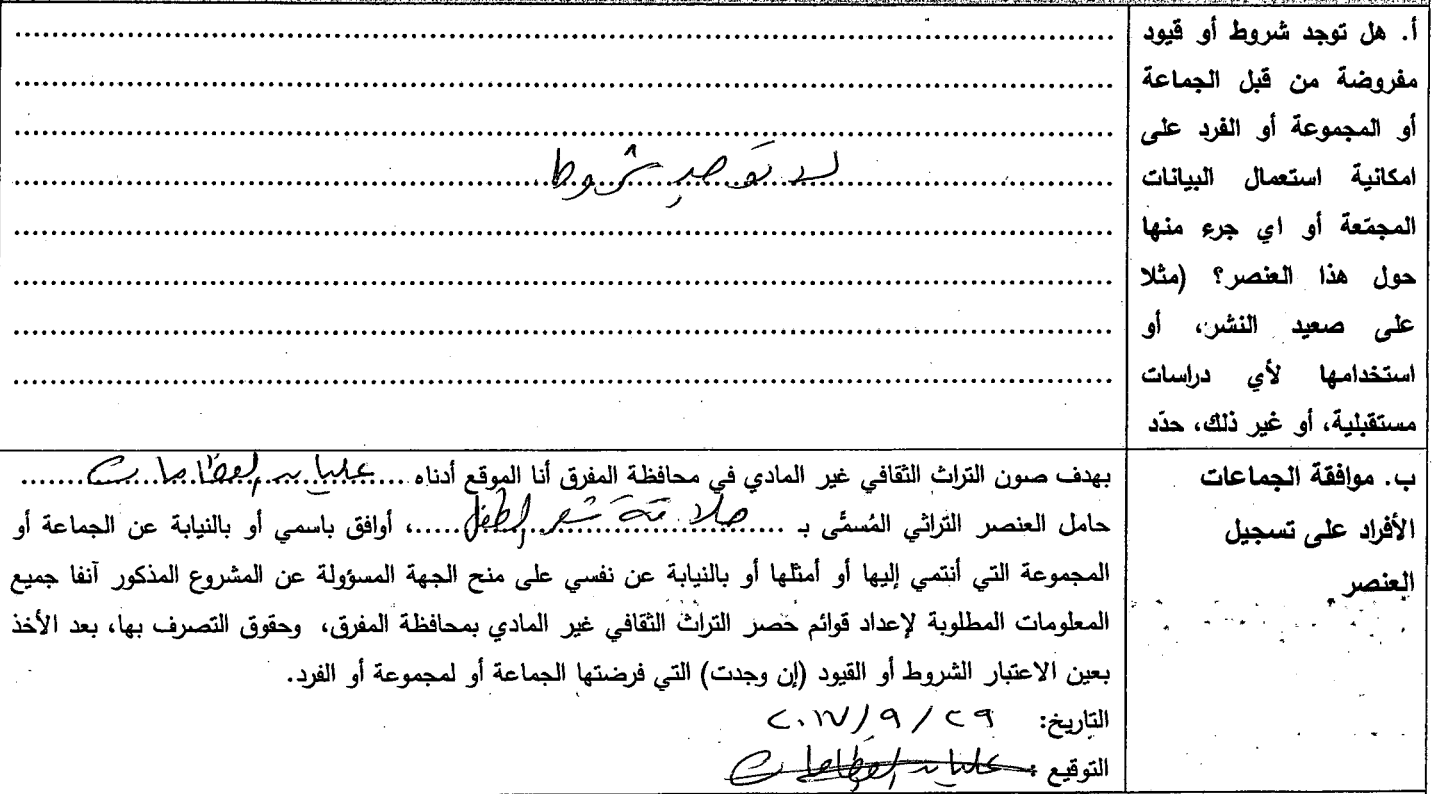 أ. هل توجد شروط أو قيود
مفروضة من قبل الجماعة
أو المجموعة أو الفرد على
امكانية استعمال البيانات
المجمّعة أو اي جرء منها
حول هذا العنصر؟ (مثلا
على صعيد النشر، أو
استخدامها لأي دراسات
مستقبلية، أو غير ذلك، حدّد
لا توجد شروط
ب. موافقة الجماعات
الأفراد على تسجيل
العنصر
بهدف صون التراث الثقافي غير المادي في محافظة المفرق أنا الموقع أدناه .... العظامات ....
حامل العنصر التراثي المُسمَّى بـ .... شعر الطفل ....، أوافق باسمي أو بالنيابة عن الجماعة أو
المجموعة التي أنتمي إليها أو أمثلها أو بالنيابة عن نفسي على منح الجهة المسؤولة عن المشروع المذكور آنفا جميع
المعلومات المطلوبة لإعداد قوائم حصر التراث الثقافي غير المادي بمحافظة المفرق، وحقوق التصرف بها، بعد الأخذ
بعين الاعتبار الشروط أو القيود (إن وجدت) التي فرضتها الجماعة أو لمجموعة أو الفرد.
التاريخ: ٢٩ / ٩ / ٢٠١٧
التوقيع : العظامات